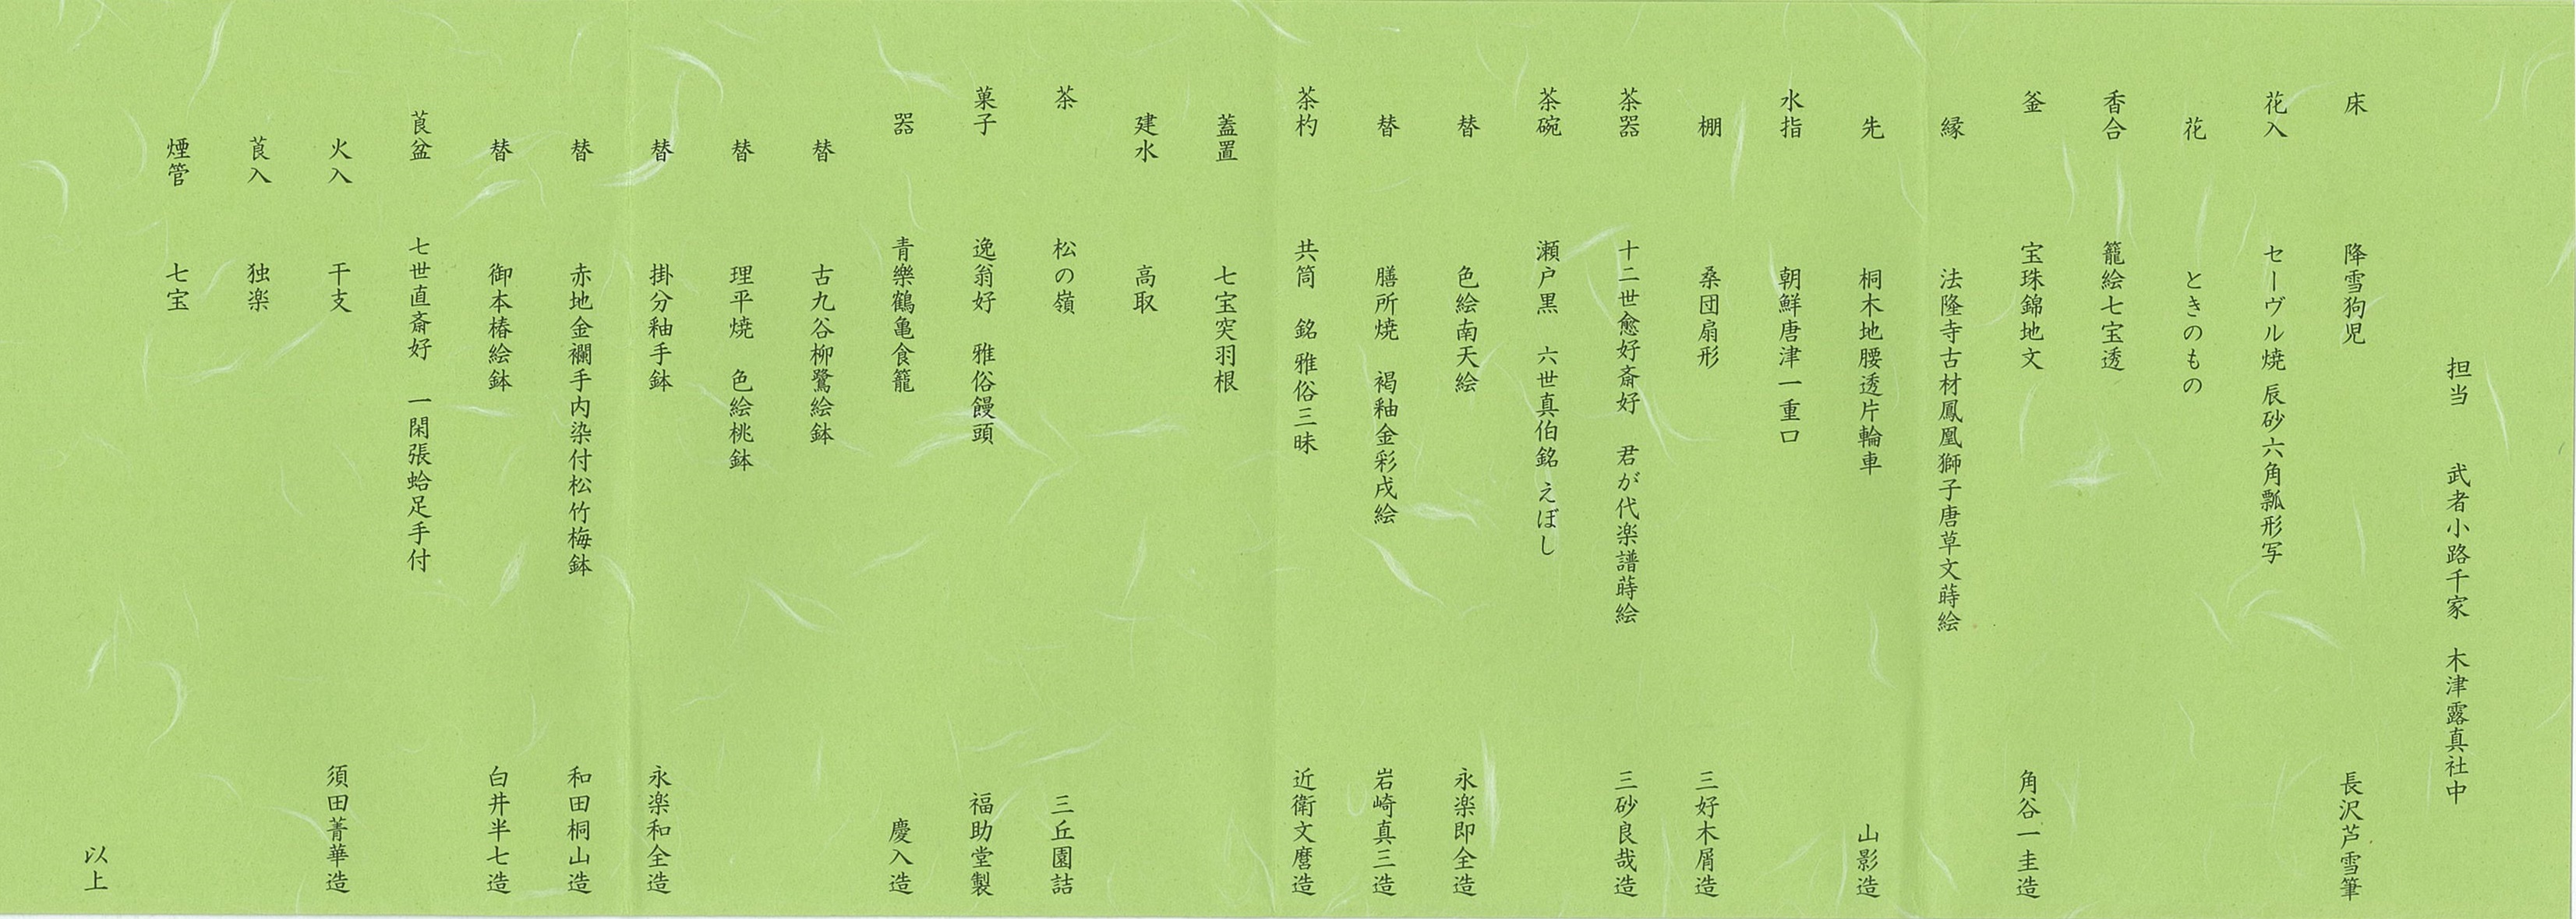 担当　武者小路千家　木津露真社中
床　降雪狗児　長沢芦雪筆
花入　セーヴル焼 辰砂六角瓢形写
花　ときのもの
香合　籠絵七宝透
釜　宝珠錦地文　角谷一圭造
縁　法隆寺古材鳳凰獅子唐草文蒔絵
先　桐木地腰透片輪車　山影造
水指　朝鮮唐津一重口
棚　桑団扇形　三好木屑造
茶器　十二世愈好斎好　君が代楽譜蒔絵　三砂良哉造
茶碗　瀬戸黒　六世真伯銘 えぼし
替　色絵南天絵　永楽即全造
替　膳所焼　褐釉金彩戌絵　岩崎真三造
茶杓　共筒　銘 雅俗三昧　近衛文麿造
蓋置　七宝突羽根
建水　高取
茶　松の嶺　三丘園詰
菓子　逸翁好　雅俗饅頭　福助堂製
器　青樂鶴亀食籠　慶入造
替　古九谷柳鷺絵鉢
替　理平焼　色絵桃鉢
替　掛分釉手鉢　永楽和全造
替　赤地金襴手内染付松竹梅鉢　和田桐山造
替　御本椿絵鉢　白井半七造
莨盆　七世直斎好　一閑張蛤足手付
火入　干支　須田菁華造
莨入　独楽
煙管　七宝
以上